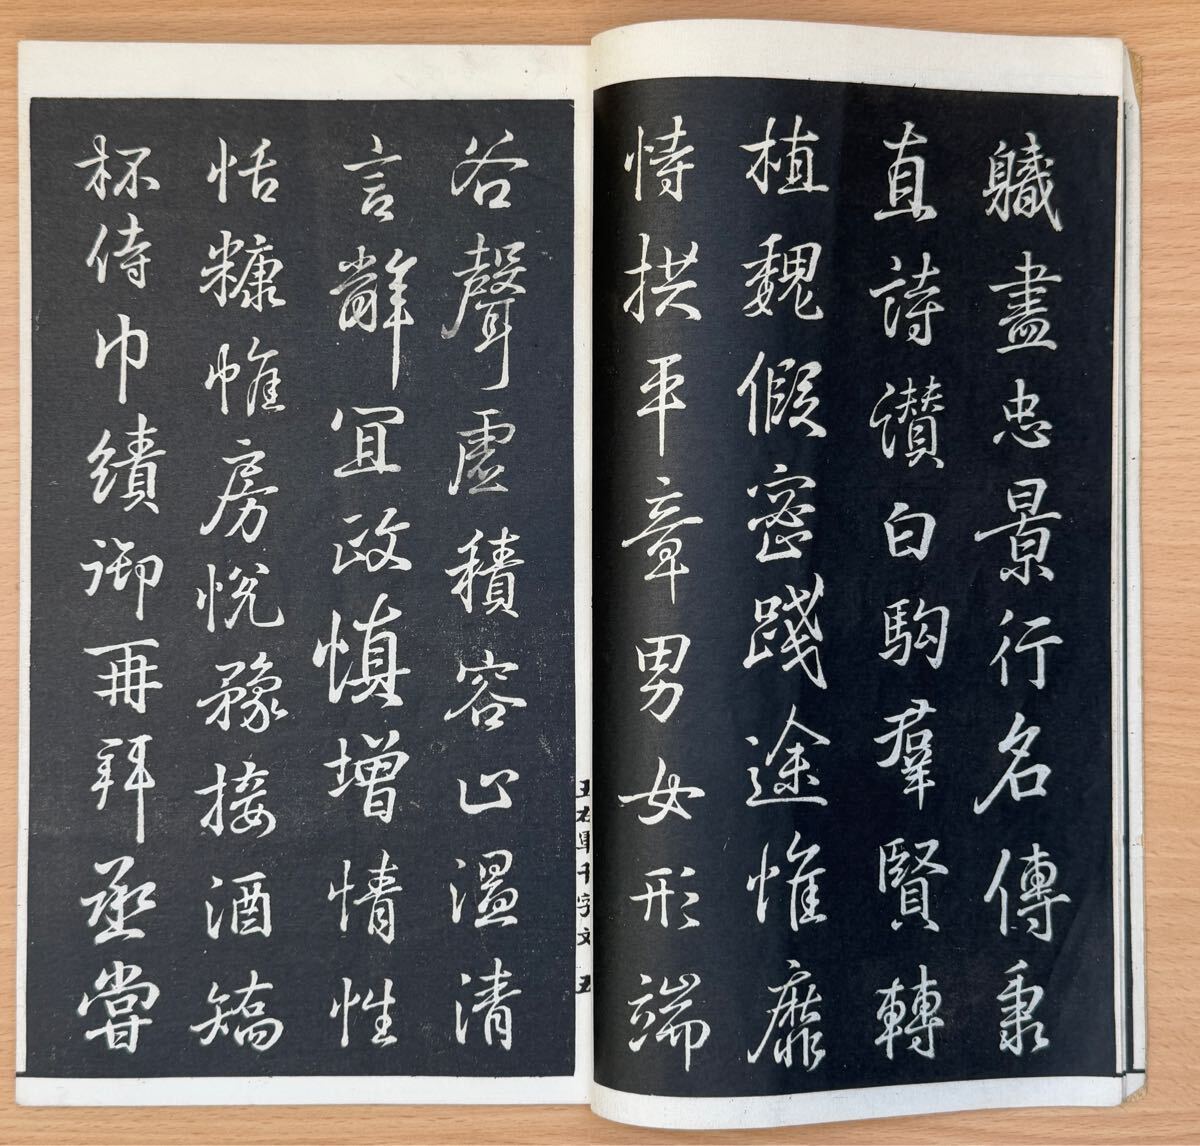 職盡忠景行名傳秉
直詩讃白駒羣賢轉
植魏假密踐途惟靡
恃拱平章男女形端
王右軍千字文 五
谷聲虛積容止溫清
言辭宜政慎增情性
恬糠帷房悅豫接酒矯
杯侍巾績御再拜烝嘗